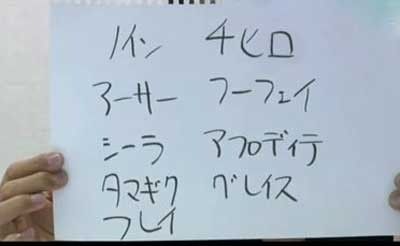 ノイン チヒロ
アーサー フーフェイ
シーラ アフロディテ
タマギク グレイス
フレイ